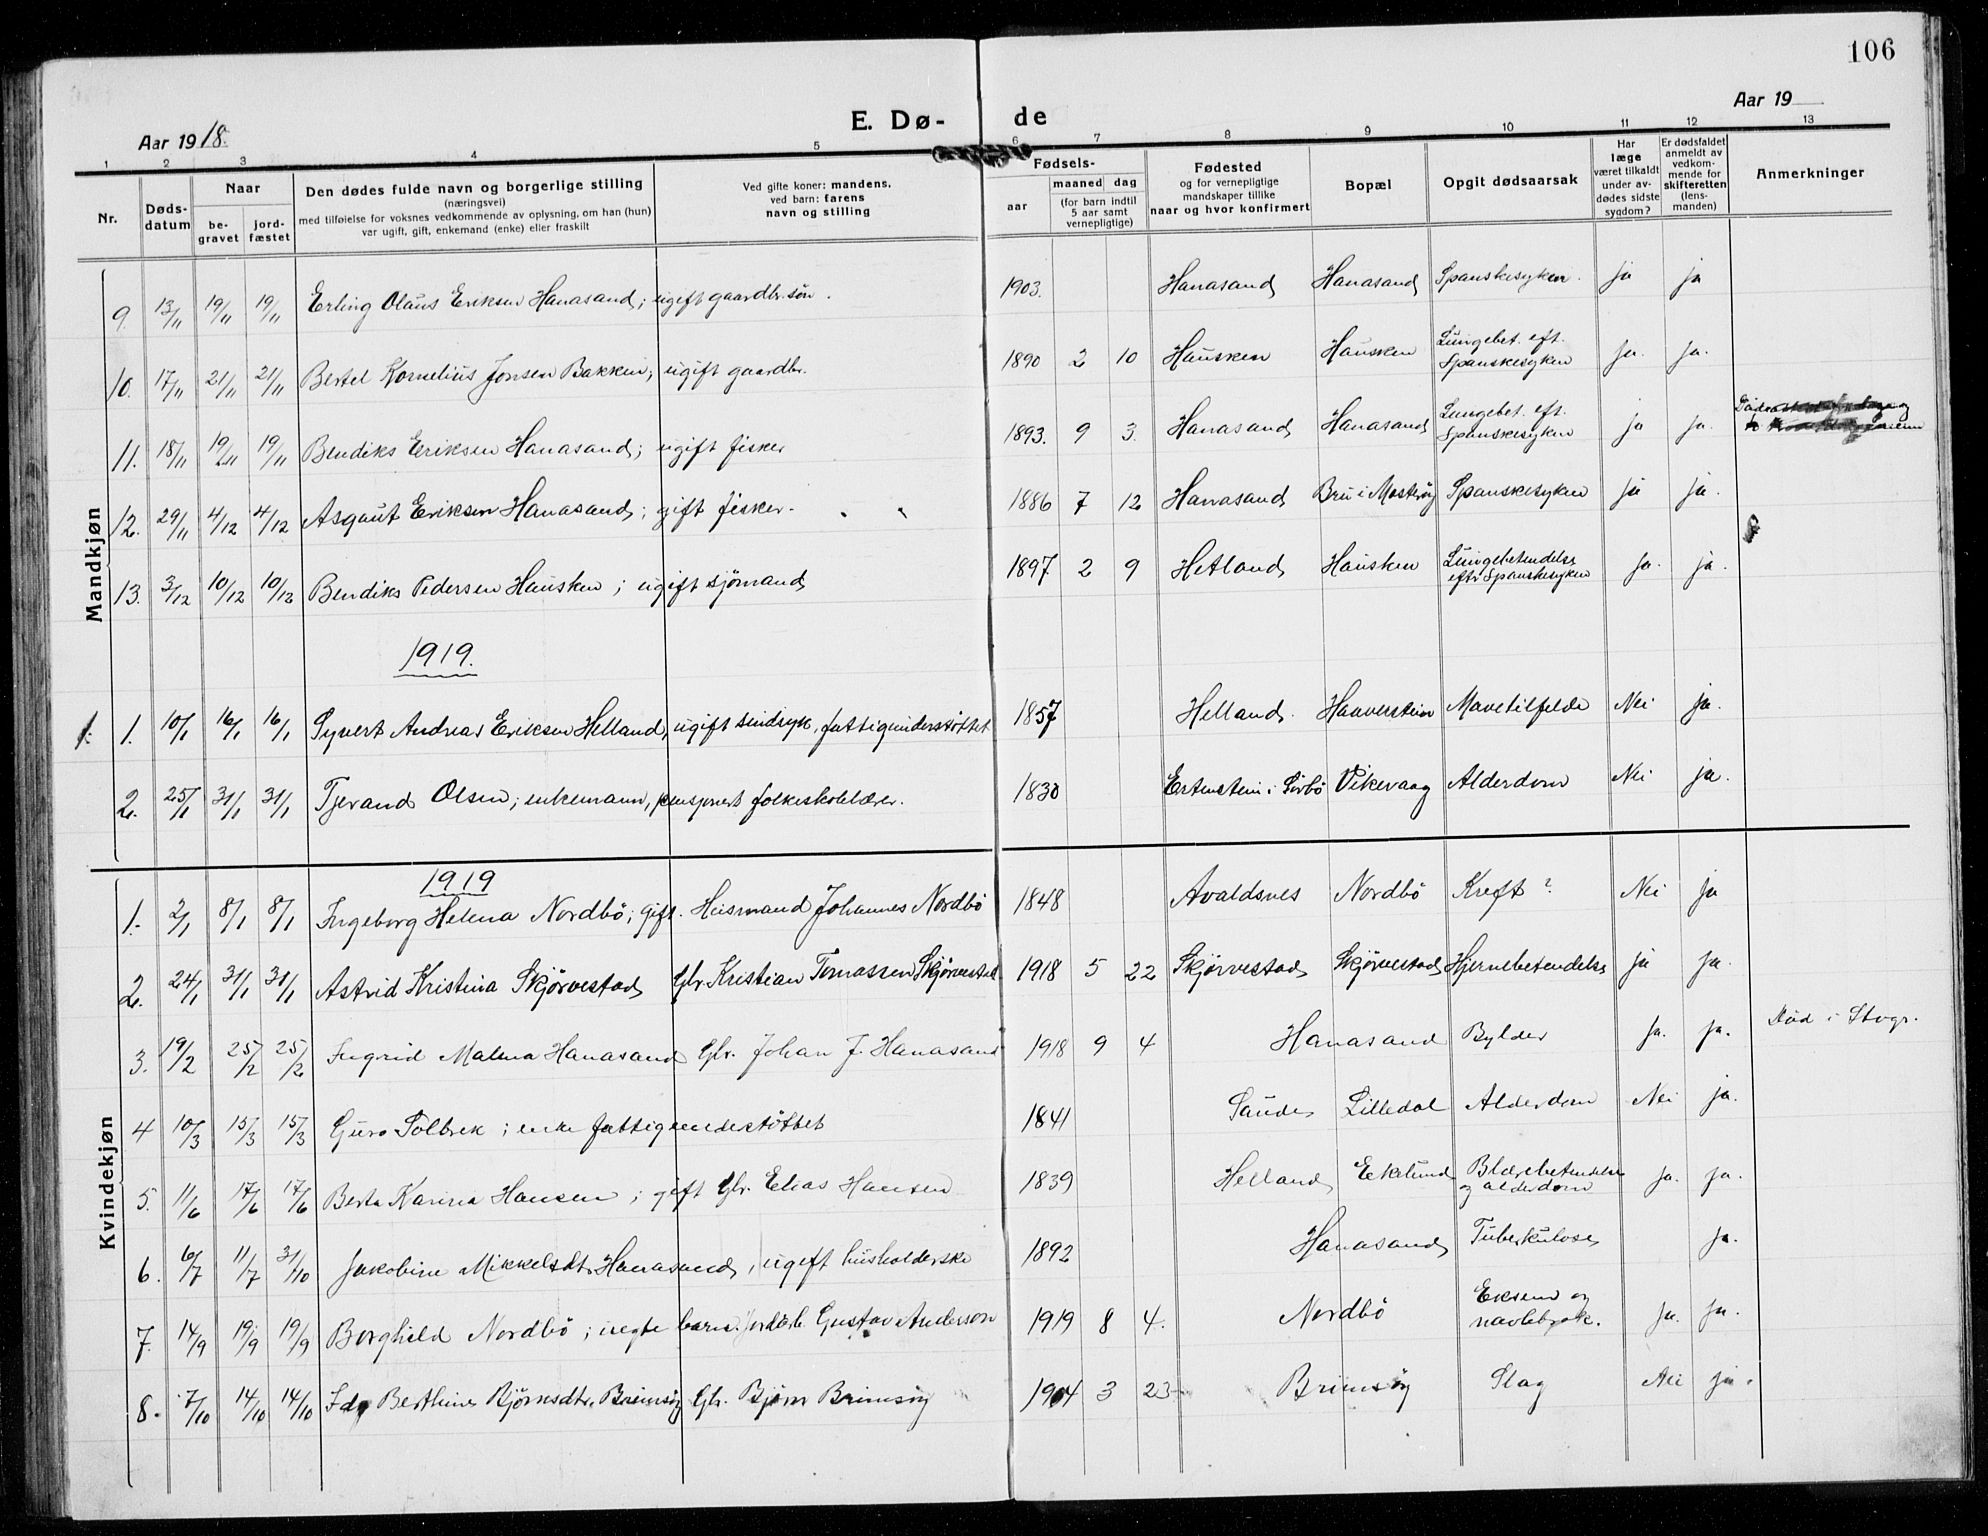 106
Aar 1918.
E. Dø-
de
Aar 19
1 2 3 4 5 6 7 8 9 10 11 12 13
Nr.
Døds-
datum
Naar
be-
gravet
jord-
fæstet
Den dødes fulde navn og borgerlige stilling
(næringsvei)
med tilføielse for voksnes vedkommende av oplysning, om han (hun)
var ugift, gift, enkemand (enke) eller fraskilt
Ved gifte koner: mandens,
ved barn: farens
navn og stilling
Fødsels-
aar
maaned dag
(for barn indtil
5 aar samt
vernepligtige)
Fødested
og for vernepligtige
mandskaper tillike
naar og hvor konfirmert
Bopæl
Opgit dødsaarsak
Har
læge
været tilkaldt
under av-
dødes sidste
sygdom?
Er dødsfaldet
anmeldt av
vedkom-
mende for
skifteretten
(lens-
manden)
Anmerkninger
Mandkjøn
9. 13/11 19/11 19/11 Erling Olaus Eriksen Hanasand; ugift gaardbr. søn. 1903. Hanasand Hanasand Spanskesyken. ja ja
10. 17/11 21/11 21/11 Bertel Kornelius Jonsen Bakken; ugift gaardbr. 1890 2 10 Hausken Hausken Lungebet. eft. Spanskesyken ja. ja.
11. 18/11 19/11 19/11 Bendiks Eriksen Hanasand; ugift fisker 1893. 9 3. Hanasand Hanasand Lungebet. eft. Spanskesyken ja ja.
12. 29/11 4/12 4/12 Asgaut Eriksen Hanasand; gift fisker. 1886 7 12 Hanasand Bru i Mosterøy Spanskesyken ja ja.
13. 3/12 10/12 10/12 Bendiks Pedersen Hausken; ugift sjömand 1897 2 9 Hetland Hausken Lungebetendelse eftr Spanskesyken ja. ja.
1919.
1. 1. 10/1 16/1 16/1 Syvert Andreas Eriksen Helland, ugift sindsyk, fattigunderstöttet 1857 Helland. Haaverstein Mavetilfelde Nei ja.
2. 25/1 31/1 31/1 Tjerand Olsen; enkemann, pensjonert folkeskolelærer. 1830 Ertenstein i Sörbö Vikevaag Alderdom Nei ja.
Kvindekjøn
1919
1. 2/1 8/1 8/1 Ingeborg Helena Nordbö; gift. Heismand Johannes Nordbö 1848 Avaldsnes Nordbö Kreft? Nei ja
2. 24/1 31/1 31/1 Astrid Kristina Skjørvestad Gbr. Kristian Tomassen Skjørvestad 1918 5 22 Skjørvestad Skjørvestad Hjernebetendelse ja ja.
3. 19/2 25/2 25/2 Ingrid Malena Hanasand Gbr. Johan J. Hanasand 1918 9 4 Hanasand Bylder ja. ja. Död i Stvgr.
4 10/3 15/3 15/3 Guro Solbrek; enke fattigunderstöttet 1841 Saude Lilledal Alderdom Nei ja.
5. 11/6 17/6 17/6 Berta Karina Hansen; gift Gbr. Elias Hansen 1839 Helland Eikelund Blærebetendelse og alderdom ja. ja.
6. 6/7 11/7 31/10 Jakobine Mikkelsdtr Hanasand, ugift husholderske 1892 Hanasand Tuberkulose ja.
7. 14/9 19/9 19/9 Borghild Nordbö; uegte barn. Gustav Anderson 1919 8 4. Nordbö Eksem og navlebrok. ja. ja.
8. 7/10 14/10 14/10 Ida Berthine Bjørnsdtr. Brimsöy Gbr. Bjørn Brimsöy 1904 3 23 Brimsöy Slag Nei ja.